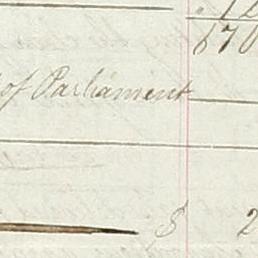 670
of Parliament
$ 2